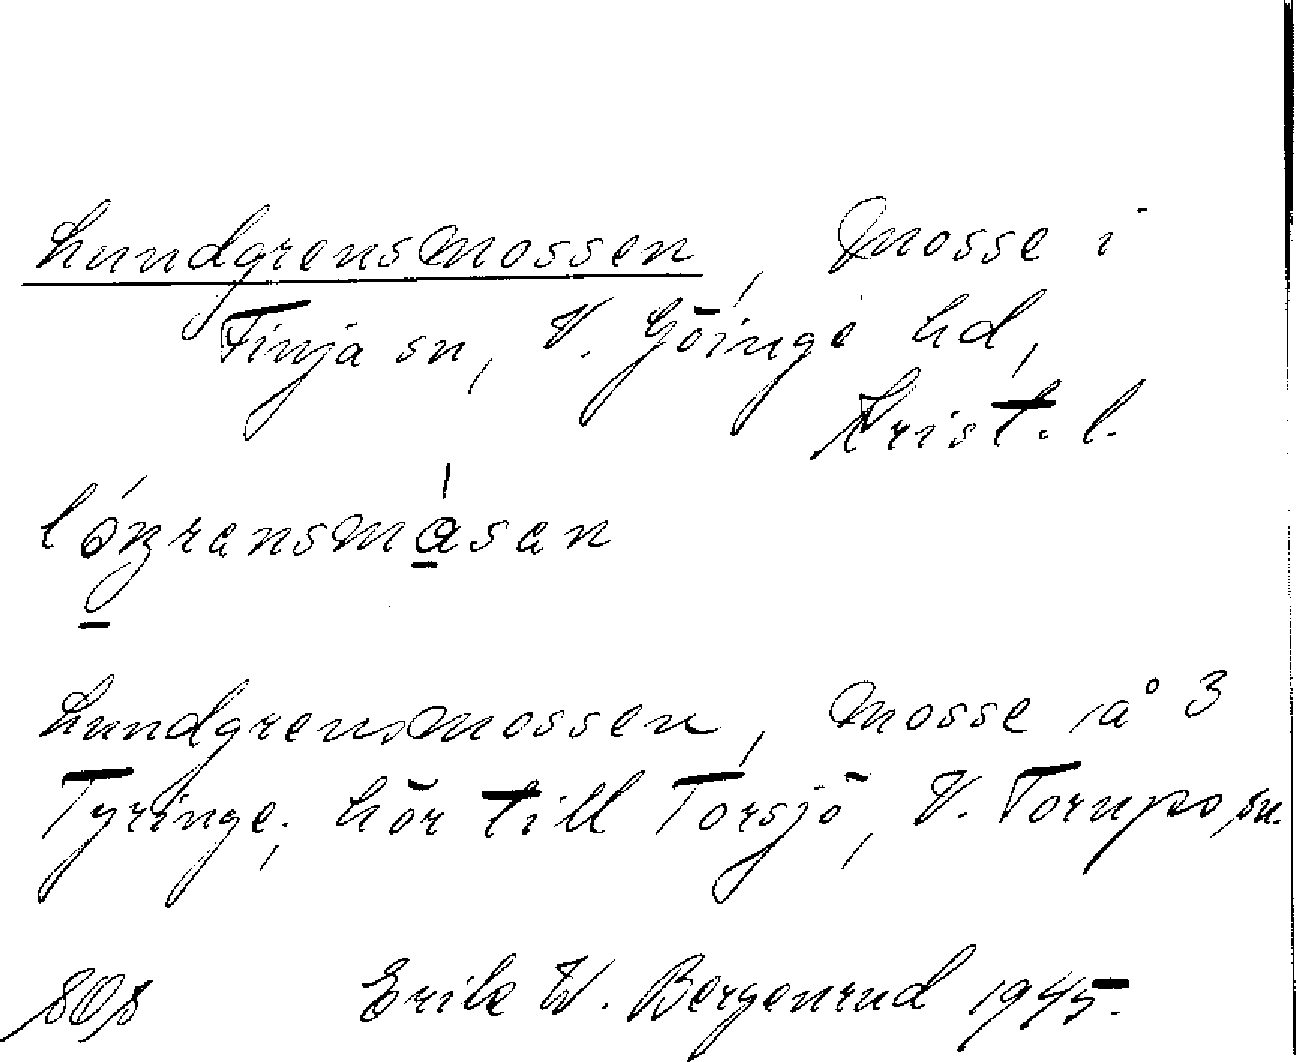 Lundgrensmossen, Mosse i
Finja sn, V. Göinge hd,
Krist. l.
Lundgrensmossen, Mosse å 3
Tyringe, hör till Torsjö, V. Torups sn.
Erik W. Bergenrud 1945.